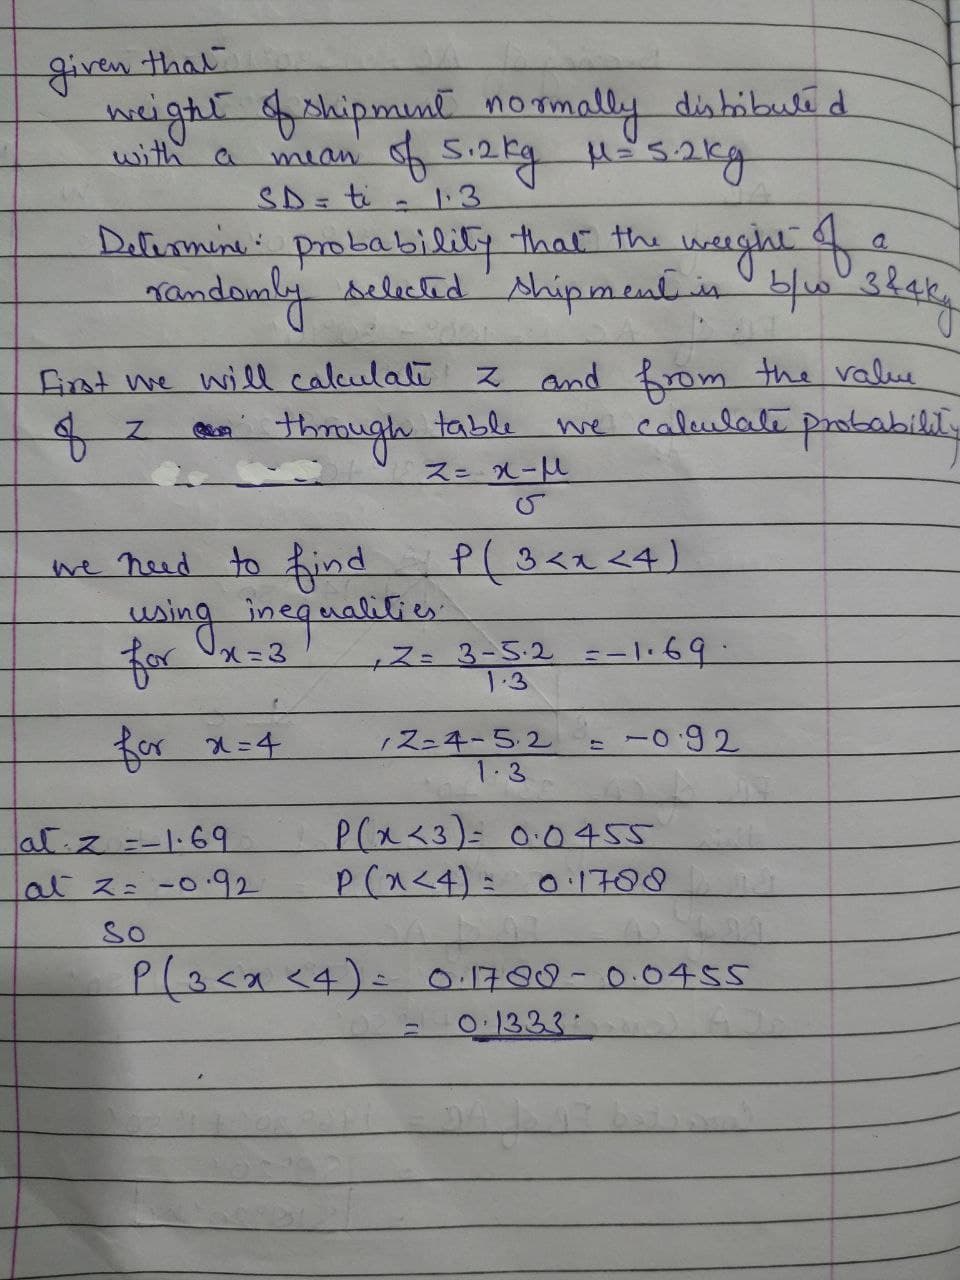 given that
weight of shipment normally distributed
with a mean of 5.2kg μ=5.2kg
SD = ti = 1.3
Determine: probability that the weeght of a
randomly selected shipment is b/w 3&4kg
First we will calculate z and from the value
of z through table we calculate probability
z = x-μ
σ
we need to find P(3<x<4)
using inequalities.
for x=3 , z = 3-5.2 = -1.69.
1.3
for x=4 , z=4-5.2 = -0.92
1.3
at z =-1.69 P(x<3)= 0.0455
at z= -0.92 P(x<4)= 0.1788
so
P(3<x<4)= 0.1788 - 0.0455
= 0.1333.